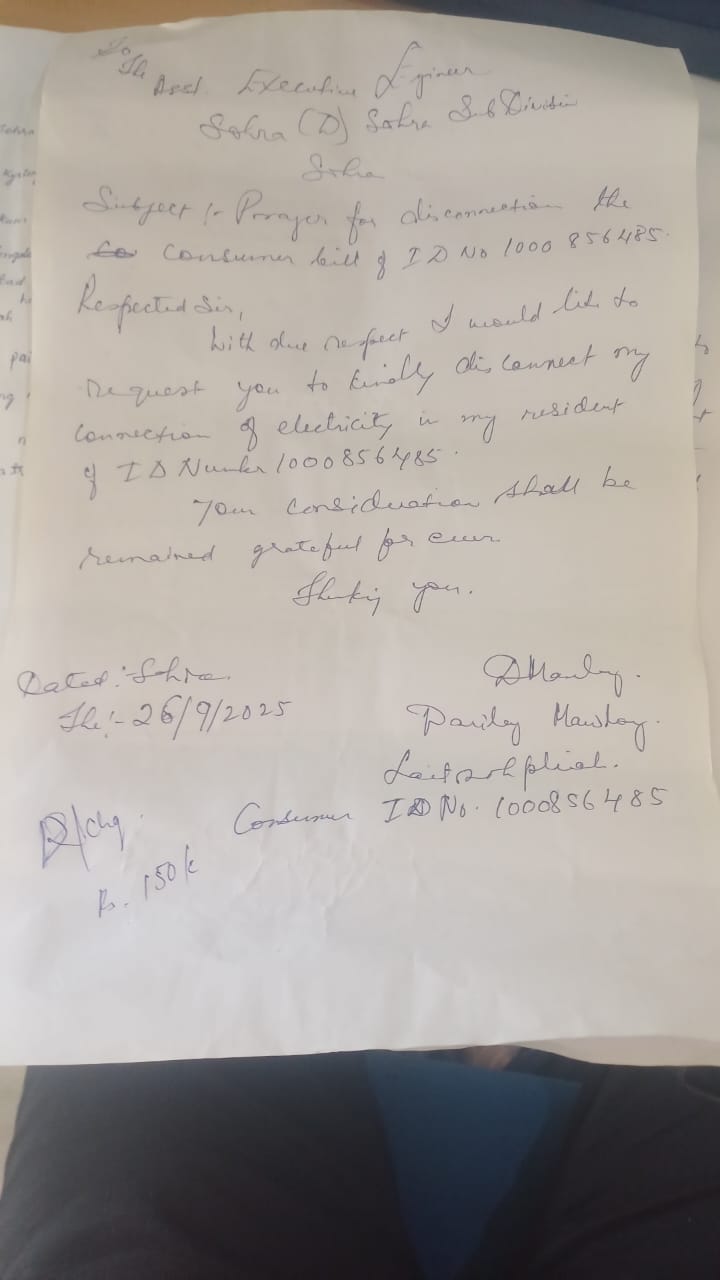 To
The Asst. Executive Engineer
Sohra (D) Sohra Sub Division
Sohra
Subject :- Prayer for disconnection the
consumer bill of ID No 1000 856485.
Respected Sir,
With due respect I would like to
request you to kindly disconnect my
connection of electricity in my resident
of ID Number 1000856485.
Your consideration shall be
remained grateful for ever
Thanking you.
Dated :- Sohra.
The :- 26/9/2025
Mawlong.
ID No. 1000856485
Consumer
D/chg.
Rs. 150/-